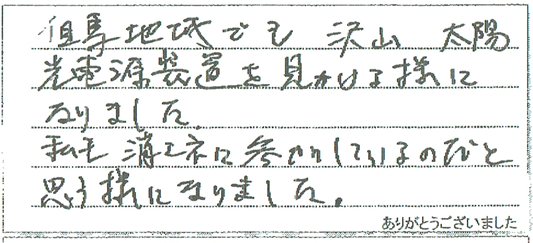 但馬地域でも 沢山 太陽
光電源装置を見かける様に
なりました。
私も 消エネに参加しているのだと
思う様になりました。
ありがとうございました